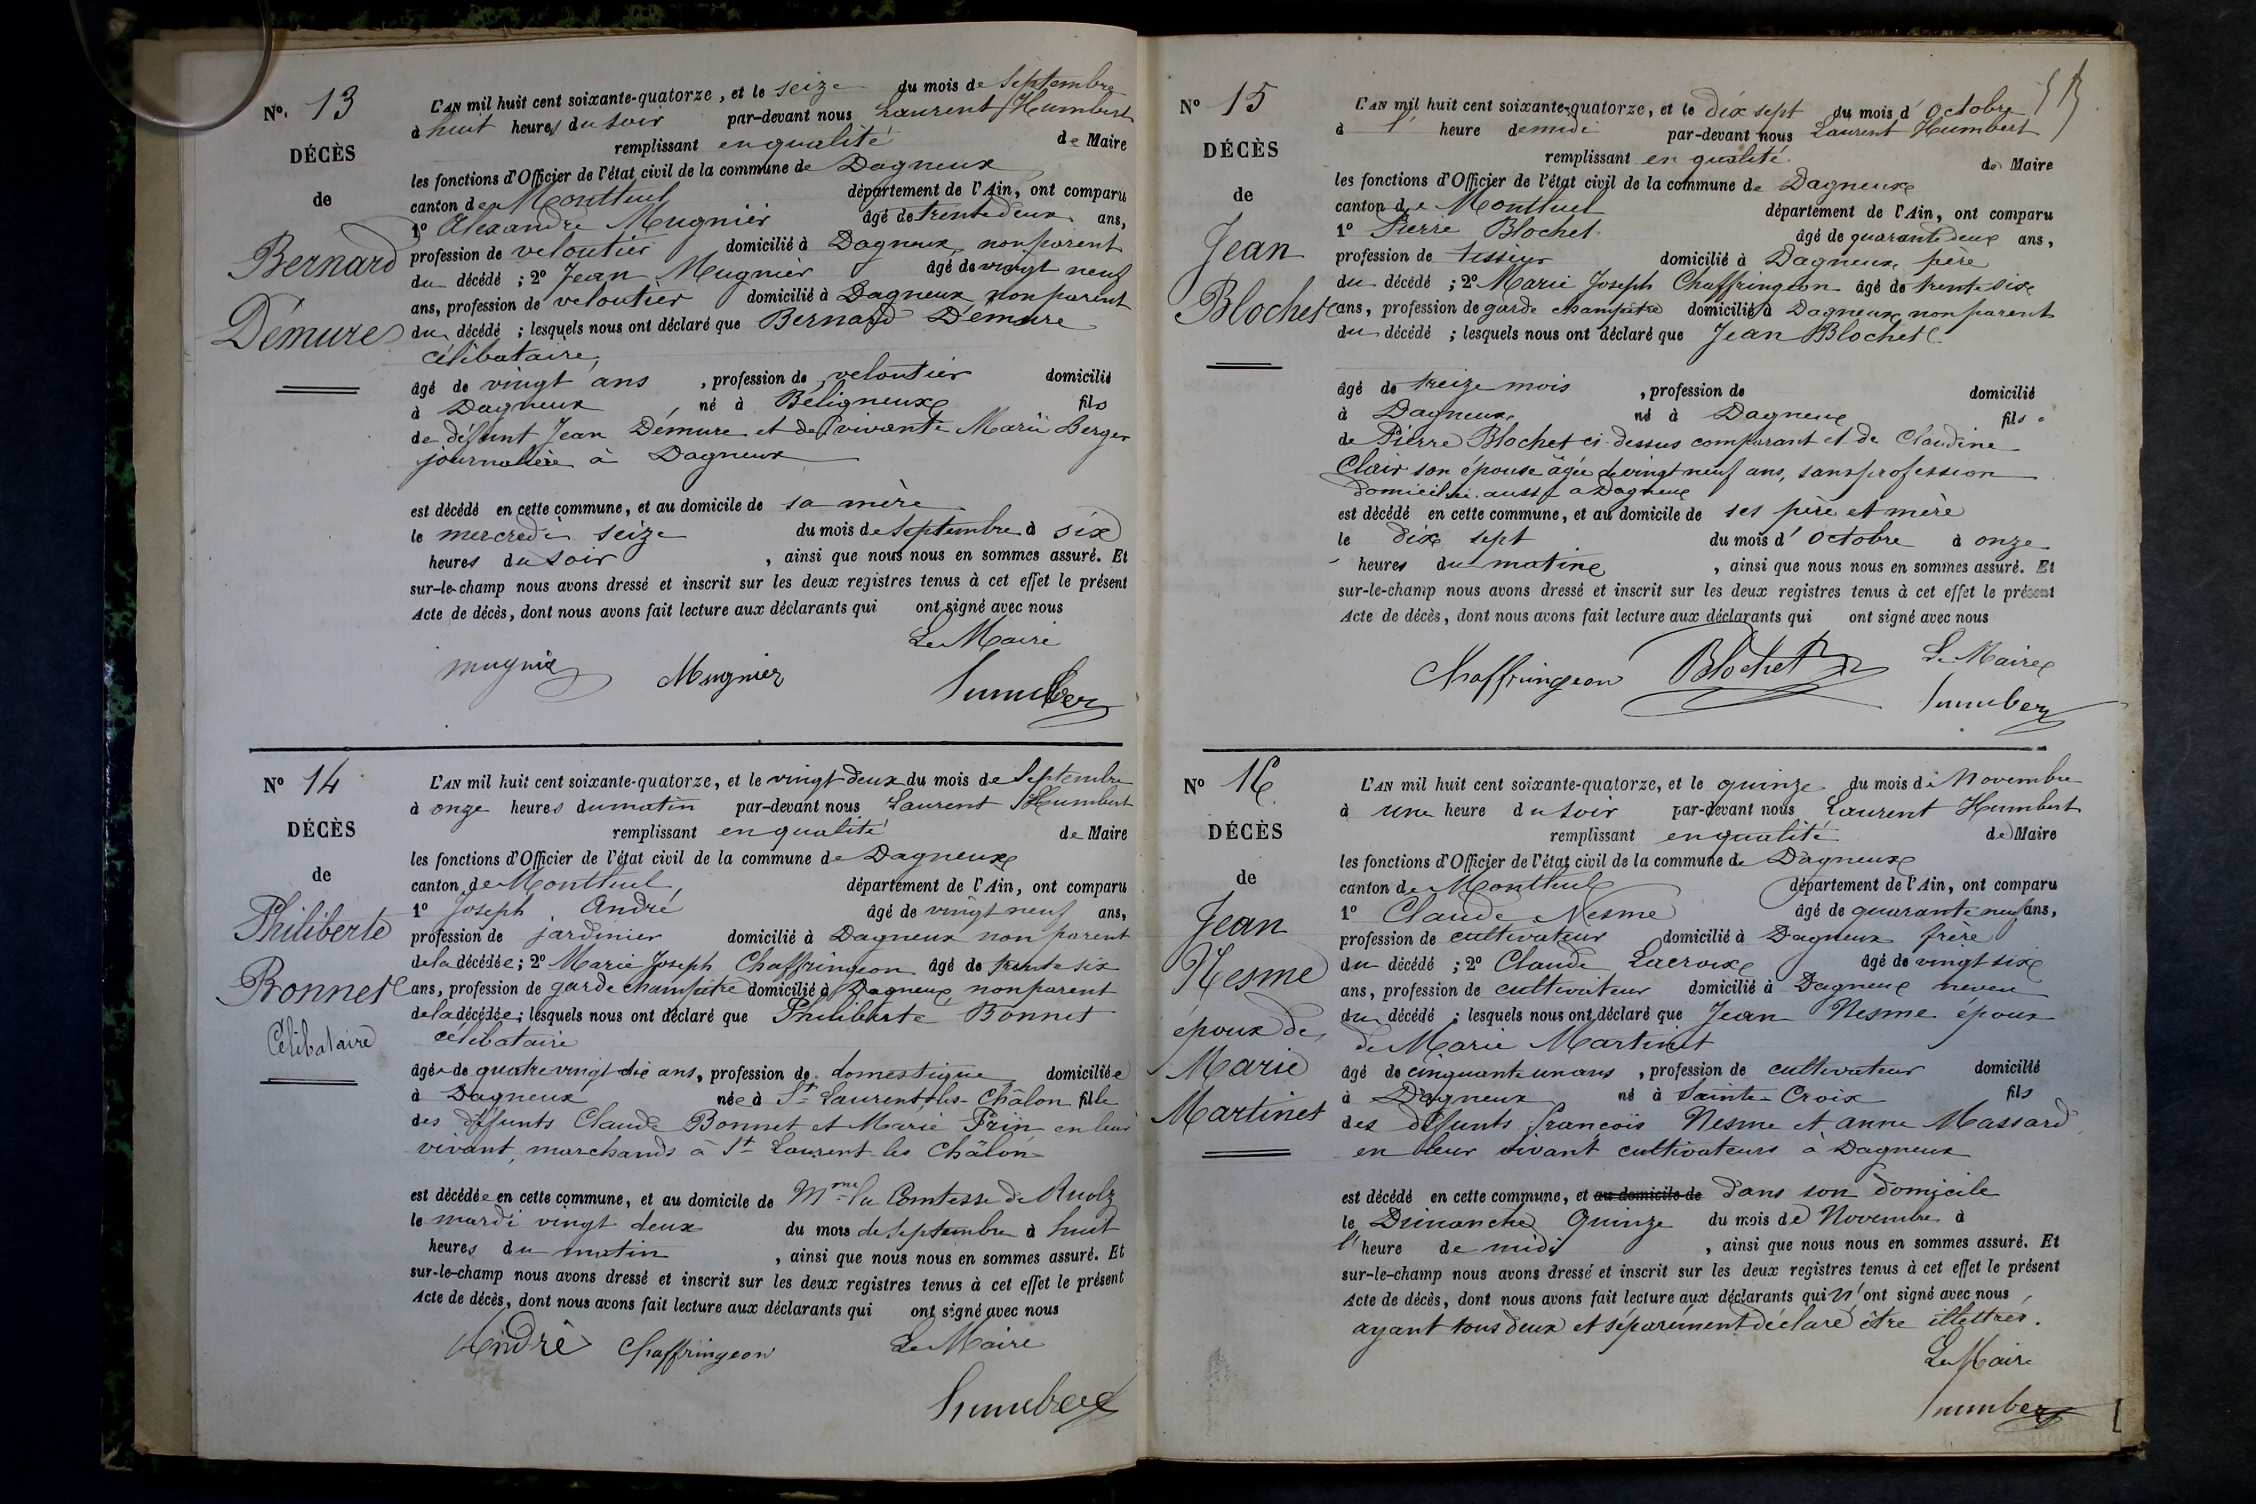 N° 13
DÉCÈS
de
Bernard
Démure
L'AN mil huit cent soixante-quatorze, et le seize du mois de Septembre
à huit heures du soir par-devant nous Laurent Humbert
remplissant en qualité de Maire
les fonctions d'Officier de l'état civil de la commune de Dagneux
canton de Montluel département de l'Ain, ont comparu
1° Alexandre Mugnier âgé de trente deux ans,
profession de veloutier domicilié à Dagneux non parent
du décédé ; 2° Jean Mugnier âgé de vingt neuf
ans, profession de veloutier domicilié à Dagneux non parent
du décédé ; lesquels nous ont déclaré que Bernard Démure
célibataire,
âgé de vingt ans , profession de veloutier domicilié
à Dagneux né à Béligneux fils
de défunt Jean Démure et de vivante Marie Berger
journalière à Dagneux
est décédé en cette commune, et au domicile de sa mère
le mercredi seize du mois de Septembre à six
heures du soir , ainsi que nous nous en sommes assuré. Et
sur-le-champ nous avons dressé et inscrit sur les deux registres tenus à cet effet le présent
Acte de décès, dont nous avons fait lecture aux déclarants qui ont signé avec nous
Le Maire
Mugnier Mugnier Humbert
N° 14
DÉCÈS
de
Philiberte
Bonnet
Célibataire
L'AN mil huit cent soixante-quatorze, et le vingt deux du mois de Septembre
à onze heures du matin par-devant nous Laurent Humbert
remplissant en qualité de Maire
les fonctions d'Officier de l'état civil de la commune de Dagneux
canton de Montluel, département de l'Ain, ont comparu
1° Joseph André âgé de vingt neuf ans,
profession de jardinier domicilié à Dagneux non parent
de la décédée ; 2° Marie Joseph Chaffringeon âgé de trente six
ans, profession de garde champêtre domicilié à Dagneux non parent
de la décédée ; lesquels nous ont déclaré que Philiberte Bonnet
célibataire
âgée de quatre vingt dix ans, profession de domestique domiciliée
à Dagneux née à St Laurent les Châlon fille
des défunts Claude Bonnet et Marie Prin en leur
vivant, marchands à St Laurent les Châlon
est décédée en cette commune, et au domicile de Mme la Comtesse de Ruolz
le mardi vingt deux du mois de Septembre à huit
heures du matin , ainsi que nous nous en sommes assuré. Et
sur-le-champ nous avons dressé et inscrit sur les deux registres tenus à cet effet le présent
Acte de décès, dont nous avons fait lecture aux déclarants qui ont signé avec nous
André Chaffringeon Le Maire
Humbert
N° 15
DÉCÈS
de
Jean
Blochet
L'AN mil huit cent soixante-quatorze, et le dix sept du mois d'Octobre
à l' heure de midi par-devant nous Laurent Humbert
remplissant en qualité de Maire
les fonctions d'Officier de l'état civil de la commune de Dagneux
canton de Montluel département de l'Ain, ont comparu
1° Pierre Blochet âgé de quarante deux ans,
profession de tisseur domicilié à Dagneux père
du décédé ; 2° Marie Joseph Chaffringeon âgé de trente six
ans, profession de garde champêtre domicilié à Dagneux non parent
du décédé ; lesquels nous ont déclaré que Jean Blochet
âgé de treize mois , profession de domicilié
à Dagneux né à Dagneux fils
de Pierre Blochet ci-dessus comparant et de Claudine
Clair son épouse âgée de vingt neuf ans, sans profession
domiciliée aussi à Dagneux
est décédé en cette commune, et au domicile de ses père et mère
le dix sept du mois d'Octobre à onze
heures du matin , ainsi que nous nous en sommes assuré. Et
sur-le-champ nous avons dressé et inscrit sur les deux registres tenus à cet effet le présent
Acte de décès, dont nous avons fait lecture aux déclarants qui ont signé avec nous
Chaffringeon Blochet Le Maire
Humbert
N° 16
DÉCÈS
de
Jean
Nesme
époux de
Marie
Martinet
L'AN mil huit cent soixante-quatorze, et le quinze du mois de Novembre
à une heure du soir par-devant nous Laurent Humbert
remplissant en qualité de Maire
les fonctions d'Officier de l'état civil de la commune de Dagneux
canton de Montluel département de l'Ain, ont comparu
1° Claude Nesme âgé de quarante neuf ans,
profession de cultivateur domicilié à Dagneux frère
du décédé ; 2° Claude Lacroix âgé de vingt six
ans, profession de cultivateur domicilié à Dagneux neveu
du décédé ; lesquels nous ont déclaré que Jean Nesme époux
de Marie Martinet
âgé de cinquante un ans , profession de cultivateur domicilié
à Dagneux né à Sainte Croix fils
des défunts françois Nesme et anne Massard
en leur vivant cultivateurs à Dagneux
est décédé en cette commune, et au domicile de dans son domicile
le Dimanche Quinze du mois de Novembre à
l'heure de midi , ainsi que nous nous en sommes assuré. Et
sur-le-champ nous avons dressé et inscrit sur les deux registres tenus à cet effet le présent
Acte de décès, dont nous avons fait lecture aux déclarants qui n'ont signé avec nous
ayant tous deux et séparément déclaré être illettrés.
Le Maire
Humbert